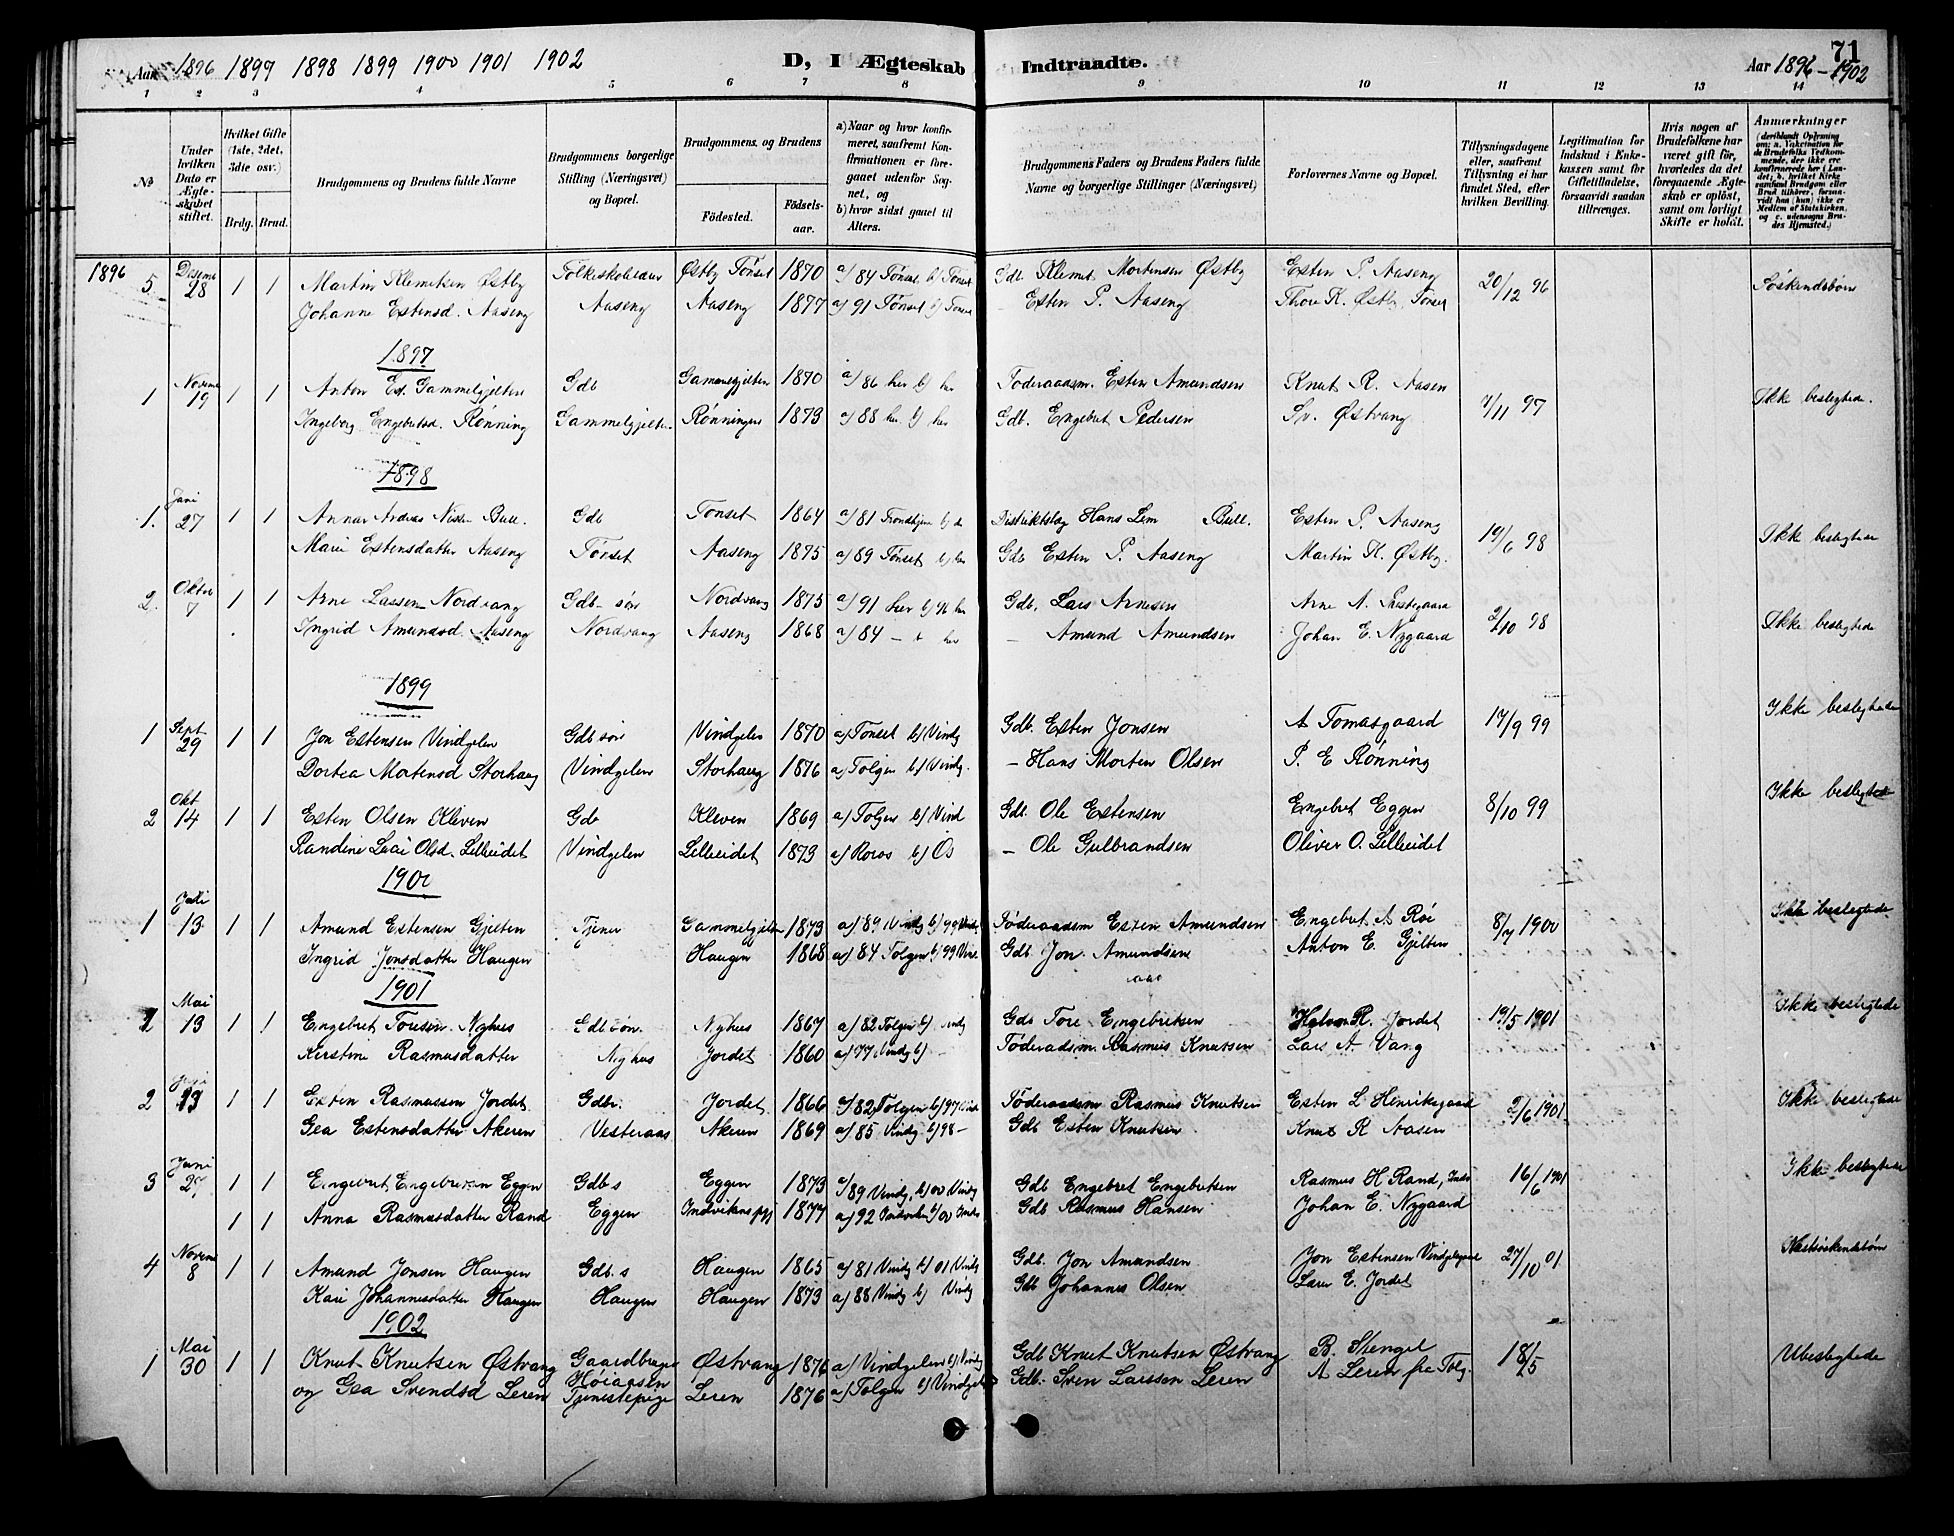 Aar 1896 1897 1898 1899 1900 1901 1902 D, I Ægteskab Indtraadte. Aar 1896-1902 71
1 2 3 4 5 6 7 8 9 10 11 12 13 14
№
Under hvilken Dato er Ægteskabet stiftet.
Hvilket Gifte (1ste, 2det, 3die osv.)
Brdg. Brud.
Brudgommens og Brudens fulde Navne
Brudgommens borgerlige Stilling (Næringsvei) og Bopæl.
Brudgommens og Brudens
Fødested. Fødselsaar.
a) Naar og hvor konfirmeret, saafremt Konfirmationen er foregaaet udenfor Sognet, og
b) hvor sidst gaaet til Alters.
Brudgommens Faders og Brudens Faders fulde Navne og borgerlige Stillinger (Næringsvei)
Forlovernes Navne og Bopæl.
Tillysningsdagene eller, saafremt Tillysning ei har fundet Sted, efter hvilken Bevilling.
Legitimation for Indskud i Enkekassen samt for Giftetilladelse, forsaavidt saadan tiltrænges.
Hvis nogen af Brudefolkene har været gift før, hvorledes da det foregaaende Ægteskab er opløst, samt om lovligt Skifte er holdt.
Anmærkninger
1896
5 28 1 1 Martin Klemetsen Østby Østby Tønset 1870 a/84 Tønset b/ Tønset Gdb Klemet Mortensen Østby Esten P. Aaseng 20/12 96 Søskendebørn
Johanne Estensd. Aaseng Aaseng Aaseng 1877 a/91 Tønset b/ Tønset - Esten P. Aaseng Thore K. Østby, Tønset
1897
1 Novem 19 1 1 Anton Est. Gammelgjelten Gdb Gammelgjelten 1870 a/86 her b/ her Føderaadsm. Esten Amundsen Knut R. Aasen 7/11 97 Ikke beslegtede.
Ingeborg Engebretsd. Rønning Gammelgjelten Rønningen 1873 a/88 her b/ her Gdb. Engebret Pedersen Sv. Østvang
1898
1. 27 1 1 Gdb Tønset 1864 a/81 Hans Lem Bull. Esten P. Aaseng 19/6 98 Ikke beslegtede
Mari Estensdatter Aaseng Tønset Aaseng 1875 a/89 Tønset b/ her Gdb Esten P. Aaseng Martin K. Østby.
2. Oktbr 7 1 1 Arne Larsen Nordvang Gdb-søn Nordvang 1875 a/91 her b/96 her Gdb. Lars Arnesen Arne A. 2/10 98 Ikke beslegtede
Ingrid Amundsd. Aaseng Nordvang Aaseng 1868 a/84 - her - Amund Amundsen Johan E. Nygaard
1899
1 Sept 29 1 1 Jon Estensen Vindgelen Gdb søn Vindgelen 1870 a/ Tønset b/ Vindg Gdb. Esten Jonsen A Tomasgaard 17/9 99 Ikke beslegtede
Dortea Mortensd Storhaug Vindgelen Storhaug 1876 a/ Tolgen b/ Vindg. - Hans Morten Olsen P. E Rønning
2 Okt 14 1 1 Esten Olsen Kleven Gdb Kleven 1869 a/ Tolgen b/ Vind Gdb. Ole Estensen Engebret Eggen 8/10 99 Ikke beslegtede
Randine Olsd. Lilleeidet Vindgelen Lilleeidet 1873 a/ Røros b/ Os - Ole Gulbrandsen Oliver O. Lilleeidet
1900
1 Juli 13 1 1 Amund Estensen Gjelten Tjener Gammelgjelten 1873 a/89 Vindg b/99 Vindg Føderaadsm Esten Amundsen Engebret A Røe 8/7 1900 Ikke beslegtede
Ingrid Jonsdatter Haugen Haugen 1868 a/84 Tolgen b/99 Vind. Gdb Jon Amundsen Anton E. Gjelten
1901
1 Mai 13 1 1 Engebret Toresen Nyhus Gdb søn Nyhus 1867 a/82 Tolgen b/ Vindg Gdb Tore Engebretsen Halvor R. Jordet 19/5 1901 Ikke beslegtede
Kerstine Rasmusdatter Nyhus Jordet 1860 a/77 Vindg b/ - Føderadsm. Rasmus Knutsen Lars A Vang
2 Juni 13 1 1 Esten Rasmussen Jordet Gdbr. Jordet 1866 a/82 Tolgen b/97 Vind Føderaadsm Rasmus Knutsen Esten L. Henriksgaard 2/6 1901 Ikke beslegtede
Gea Estensdatter Akeren Vesteraas Akeren 1869 a/85 Vindg b/98 - Gdb Esten Knutsen Knut R Aasen
3 Juni 27 1 1 Engebret Engebretsen Eggen Gdb s Eggen 1873 a/89 Vindg, b/00 Vindg Gdb Engebret Engebretsen Rasmus H Rand, 16/6 1901 Ikke beslegtede
1 1 Anna Rasmusdatter Rand Eggen Indvikens pgj 1877 a/92 b/00 Gdb Rasmus Hansen Johan E. Nygaard
4 Novem 8 1 1 Amund Jonsen Haugen Gdb. s Haugen 1865 a/81 Vindg b/01 Vindg Gdb. Jon Amundsen Jon Estensen 27/10 01 Næstsøskendebørn
Kari Johannesdatter Haugen Haugen Haugen 1873 a/88 Vindg b/ Vindg Gdb Johannes Olsen Lars E. Jordet
1902
1 Mai 30 1 1 Knut Knutsen Østvang Gaardbruger Østvang 1876 a/ Vindgelen b/ Vindg Gdb Knut Knutsen Østvang B. Stengel 18/5 Ubeslegtede
Høiaasen
og Gea Svendsd Leren Tjenestepige Leren 1876 a/ Tolgen b/ Vindgel Gdb. Sven Larssen Leren A Leren fra Tolg.